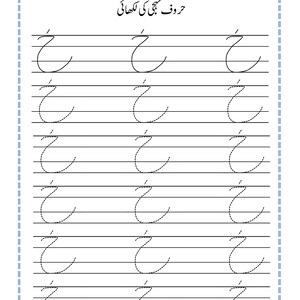 حروف تہجی کی لکھائی
خ خ خ
خ خ خ
خ خ خ
خ خ خ
خ خ خ
خ خ خ